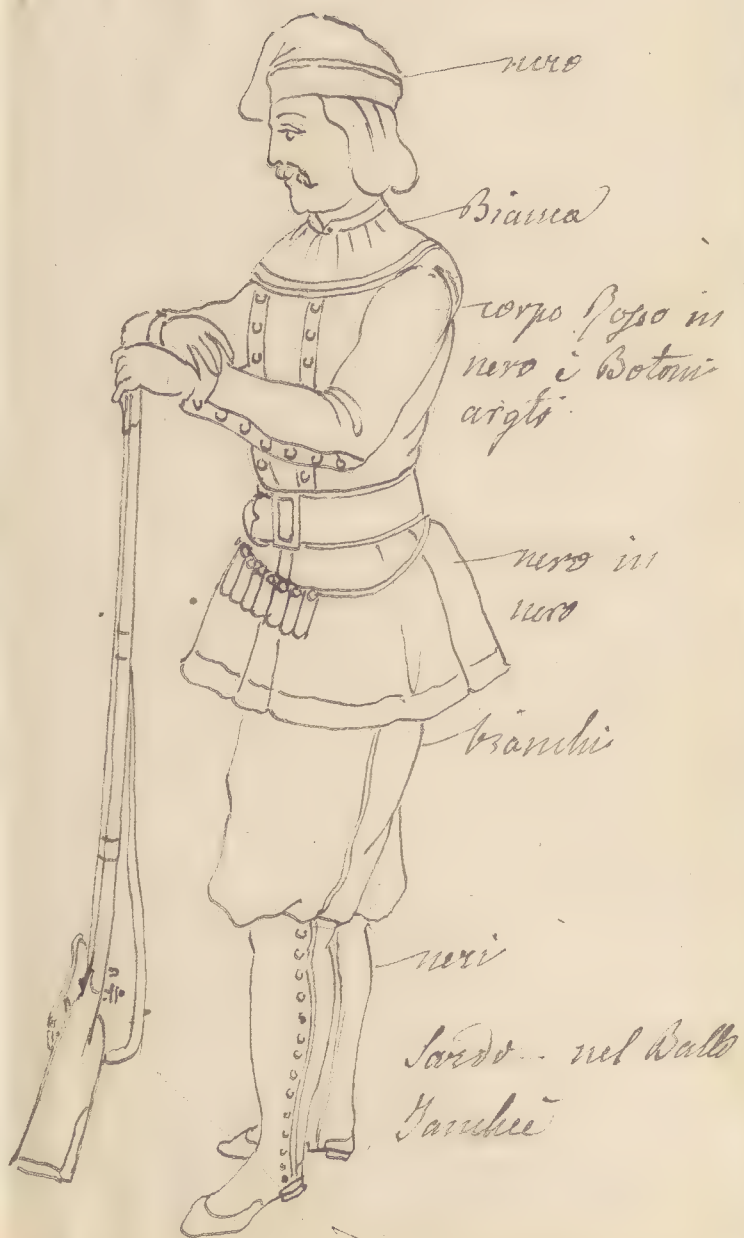 nero
Bianca
corpo Rosso in
nero è Botoni
argti
nero in
nero
bianchi
neri
Sardo.. nel Ballo